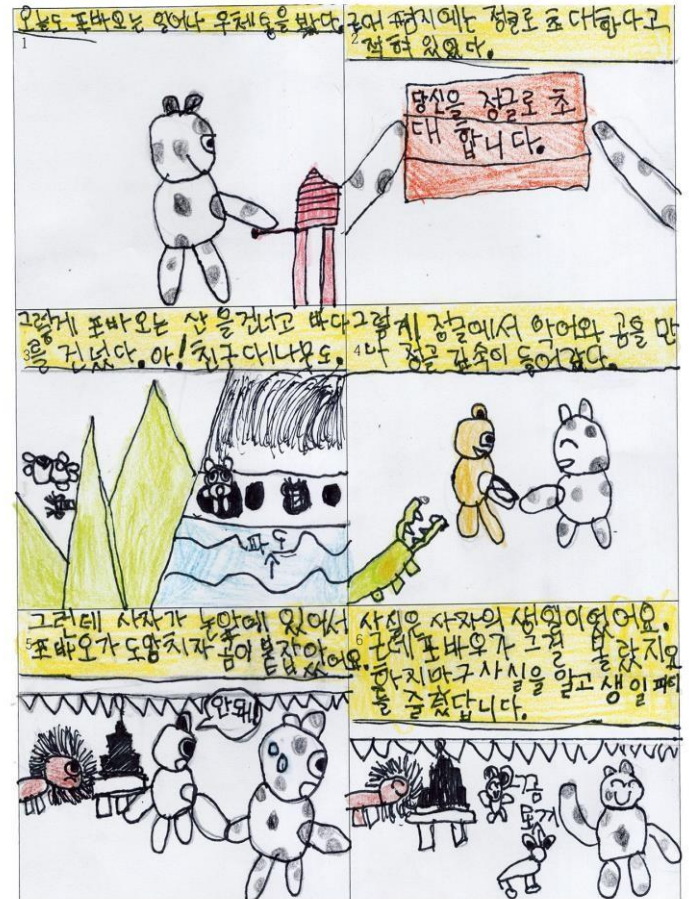 오늘도 포바오는 일어나 우체통을 봤다.
1
근데 편지에는 정글로 초대한다고
2 적혀 있었다.
당신을 정글로 초
대 합니다.
그렇게 포바오는 산을건너고 바다
3 를 건넜다. 아! 친구 다나온도.
파도
그렇게 정글에서 악어와 곰을 만
4 나 정글 깊속이 들어갔다.
그런데 사자가 눈앞에 있어서
5 포바오가 도망치자 곰이 붙잡았어요.
안돼!
사실은 사자의 생일이었어요.
6 근데 포바우가 그걸 몰랐지요
하지마구 사실을 알고 생일 파티
를 즐겼답니다.
곰
토끼